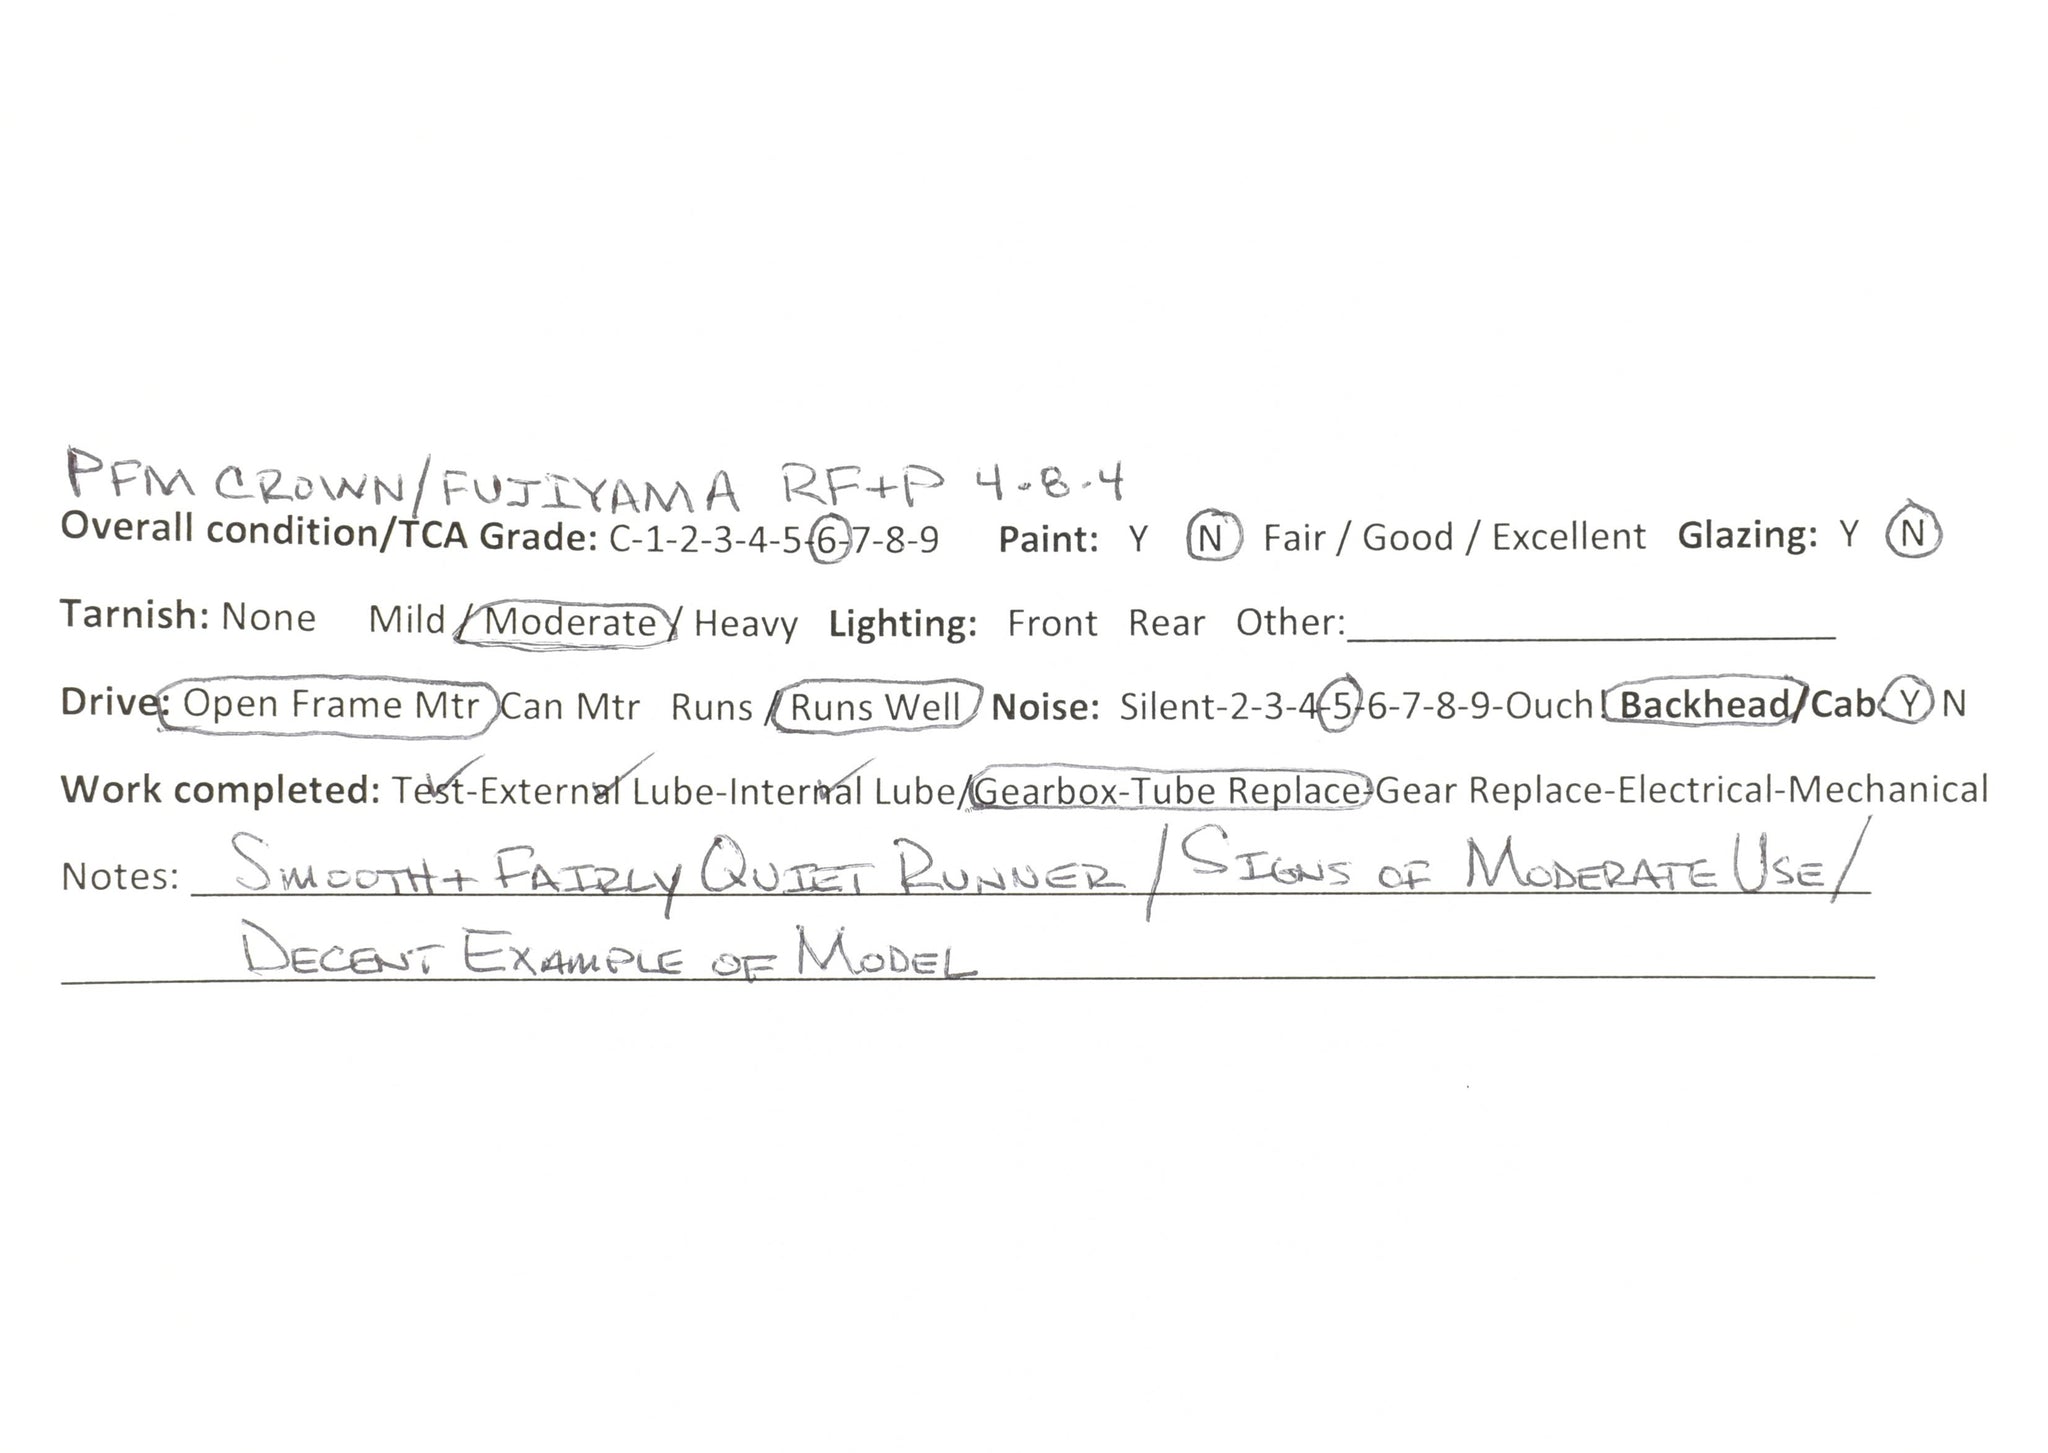 PFM CROWN/FUJIYAMA RF+P 4-8-4
Overall condition/TCA Grade: C-1-2-3-4-5-6-7-8-9 Paint: Y N Fair / Good / Excellent Glazing: Y N
Tarnish: None Mild / Moderate / Heavy Lighting: Front Rear Other:
Drive: Open Frame Mtr Can Mtr Runs / Runs Well Noise: Silent-2-3-4-5-6-7-8-9-Ouch! Backhead/Cab: Y N
Work completed: Test-External Lube-Internal Lube/Gearbox-Tube Replace-Gear Replace-Electrical-Mechanical
Notes: SMOOTH + FAIRLY QUIET RUNNER / SIGNS OF MODERATE USE /
DECENT EXAMPLE OF MODEL